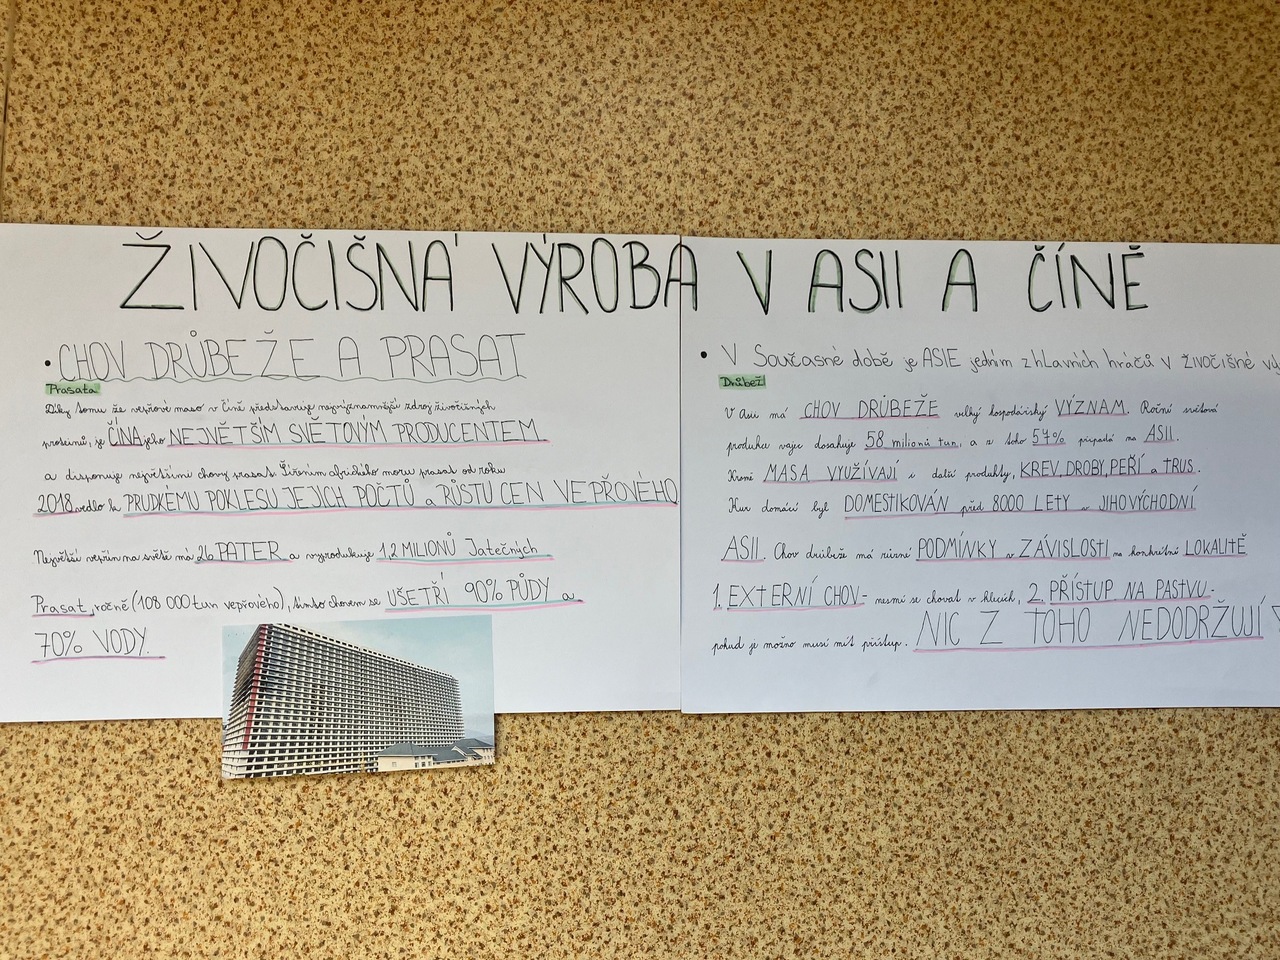 ŽIVOČIŠNÁ VÝROBA V ASII A ČÍNĚ
• CHOV DRŮBEŽE A PRASAT
Prasata
Díky tomu že vepřové maso v Číně představuje nejvýznamnější zdroj živočišných
proteinů, je ČÍNA jeho NEJVĚTŠÍM SVĚTOVÝM PRODUCENTEM.
a disponuje největšími chovy prasat. Šířením afrického moru prasat od roku
2018 vedlo k PRUDKÉMU POKLESU JEJICH POČTŮ a RŮSTU CEN VEPŘOVÉHO
Největší vepřín na světě má 26 PATER a vyprodukuje 1,2 MILIONŮ Jatečných
Prasat, ročně (108 000 tun vepřového), tímto chovem se UŠETŘÍ 90% PŮDY a
70% VODY.
• V Současné době je ASIE jedním z hlavních hráčů v živočišné vý
Drůbež
V Asii má CHOV DRŮBEŽE velký hospodářský VÝZNAM. Roční světová
produkce vajec dosahuje 58 milionů tun, a z toho 57% připadá na ASII.
Kromě MASA VYUŽÍVAJÍ i další produkty, KREV, DROBY, PEŘÍ a TRUS.
Kur domácí byl DOMESTIKOVÁN před 8000 LETY v JIHOVÝCHODNÍ
ASII. Chov drůbeže má různé PODMÍNKY v ZÁVISLOSTI na konkrétní LOKALITĚ
1. EXTERNÍ CHOV - nesmí se chovat v klecích, 2. PŘÍSTUP NA PASTVU -
pokud je možno musí mít přístup. NIC Z TOHO NEDODRŽUJÍ